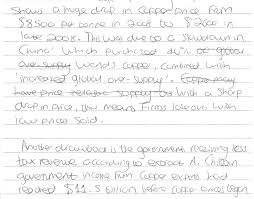 shows a huge drop in copper price from
$8500 per tonne in 2008 to $2600 in
late 2008. This was due to a slowdown in
China which purchased 40% of global
over supply World's copper, combined with
'increased global over-supply'. Copper may
have price relative supply to With a sharp
drop in price, this means firms lose out with
low prices sold.
Another drawback is the government receiving less
tax revenue according to extract A. Chilean
government income from copper exports had
reached $11.5 billion before copper prices began